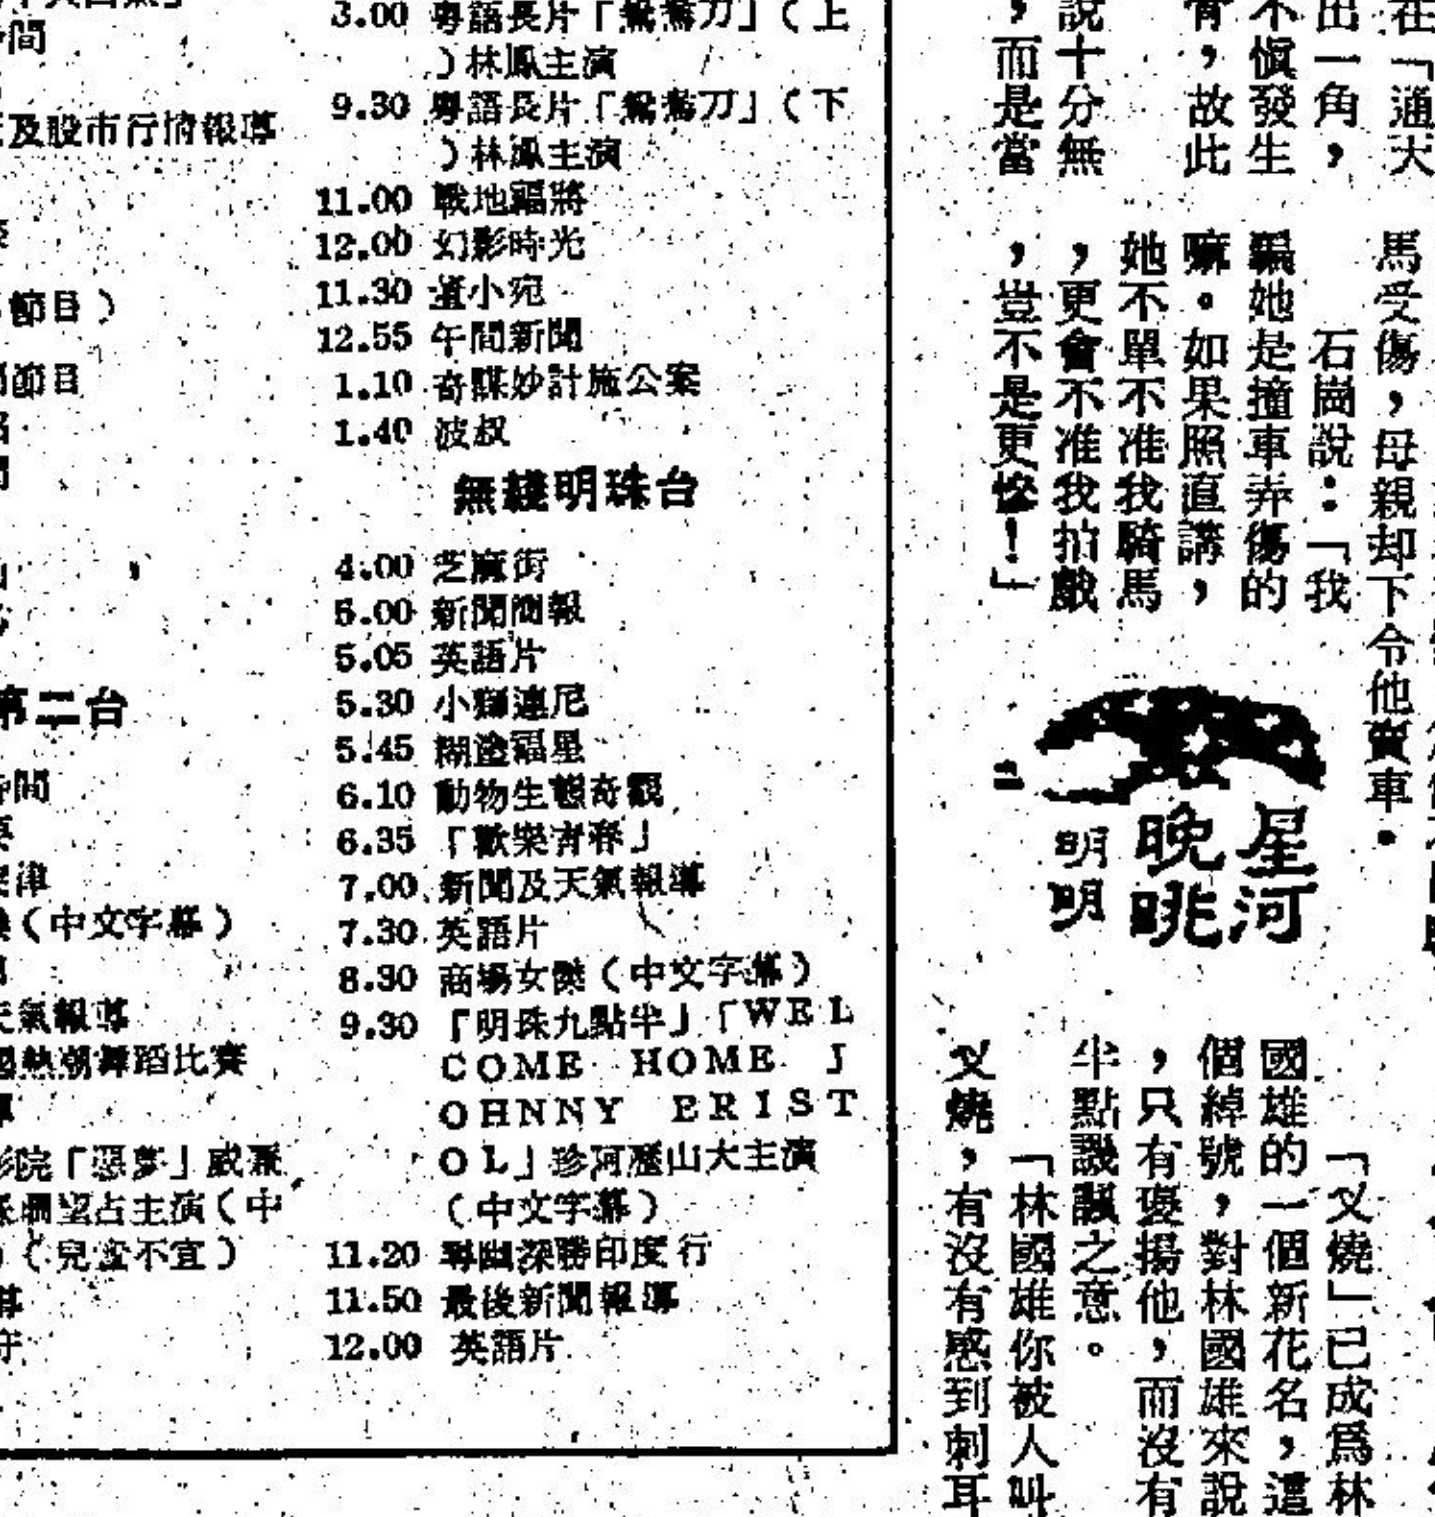 間
及股市行情報導
節目）
節目
第二台
時間
津
（中文字幕）
天氣報導
熱潮舞蹈比賽
影院「惡夢」威廉
主演（中
（兒童不宜）
3.00 粵語長片「鴛鴦刀」（上
）林鳳主演
9.30 粵語長片「鴛鴦刀」（下
）林鳳主演
11.00 戰地福將
12.00 幻影時光
11.30 董小宛
12.55 午間新聞
1.10 奇謀妙計施公案
1.40 波叔
無綫明珠台
4.00 芝麻街
5.00 新聞簡報
5.05 英語片
5.30 小獅連尼
5.45 糊塗福星
6.10 動物生態奇觀
6.35 「歡樂青春」
7.00 新聞及天氣報導
7.30 英語片
8.30 商場女傑（中文字幕）
9.30 「明珠九點半」「WEL
COME HOME J
OHNNY ERIST
OL」珍阿歷山大主演
（中文字幕）
11.20 尋幽探勝印度行
11.50 最後新聞報導
12.00 英語片
在「通天
出一角，
不慎發生
骨，故此
說十分無
，而是當
馬受傷，母親却下令他賣車。
石崗說：「我
騙她是撞車弄傷的
嘛。如果照直講，
她不單不准我騎馬
，更會不准我拍戲
，豈不是更慘！」
星河
晚眺
明明
「叉燒」已成爲林
國雄的一個新花名，這
個綽號，對林國雄來說
，只有褒揚他，而沒有
半點譏諷之意。
「林國雄你被人叫
叉燒，有沒有感到刺耳